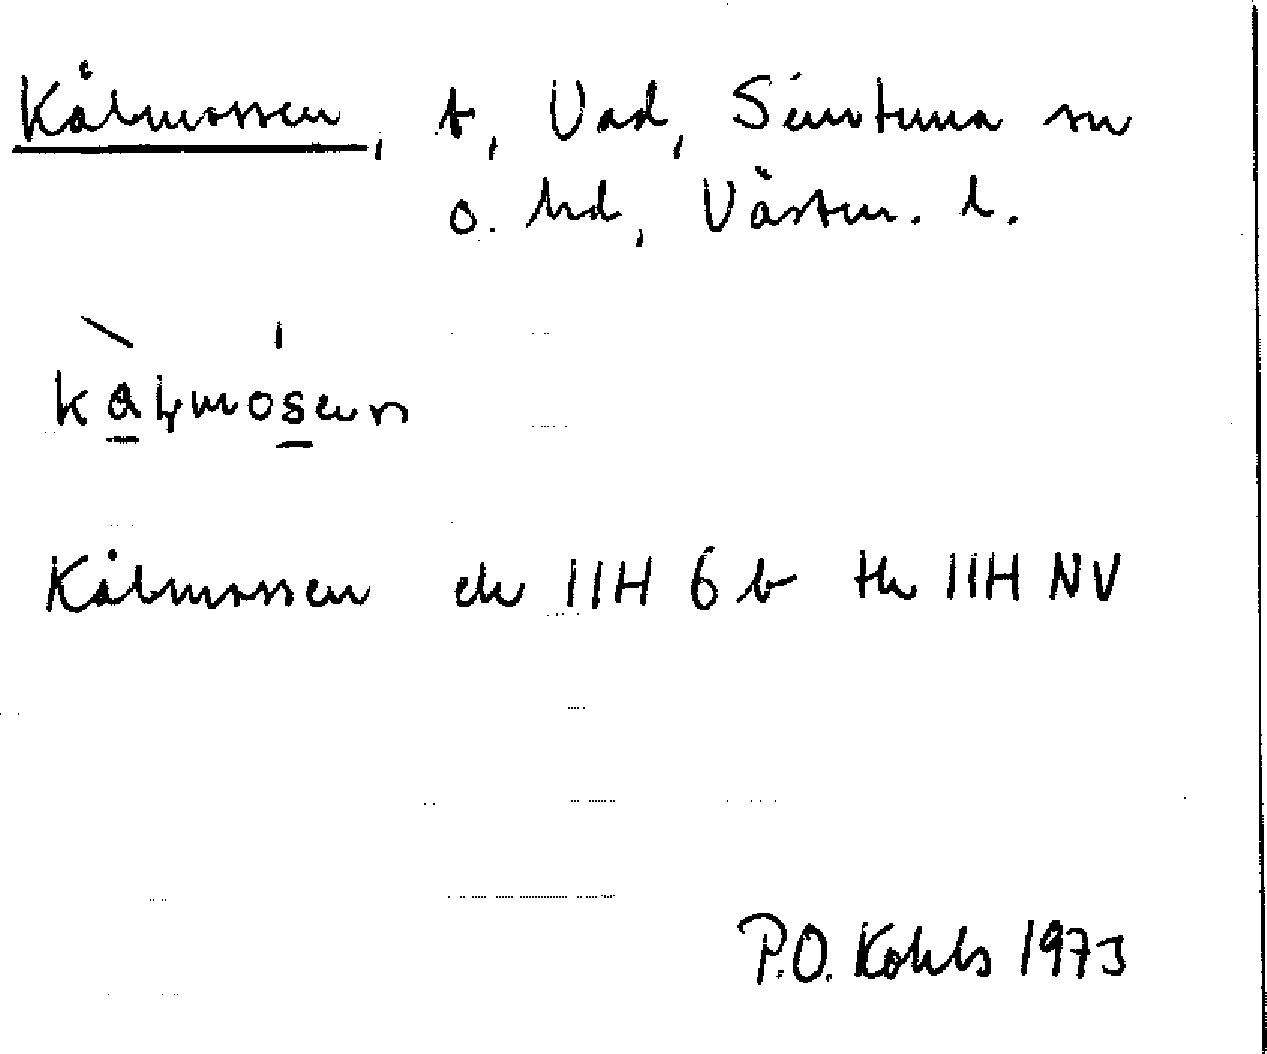 Kålmossen, t, Vad, Simtuna sn
o. hd, Västm. l.
kålmosen
Kålmossen ek 11H 6 b tk 11H NV
P.O. Kohls 1973